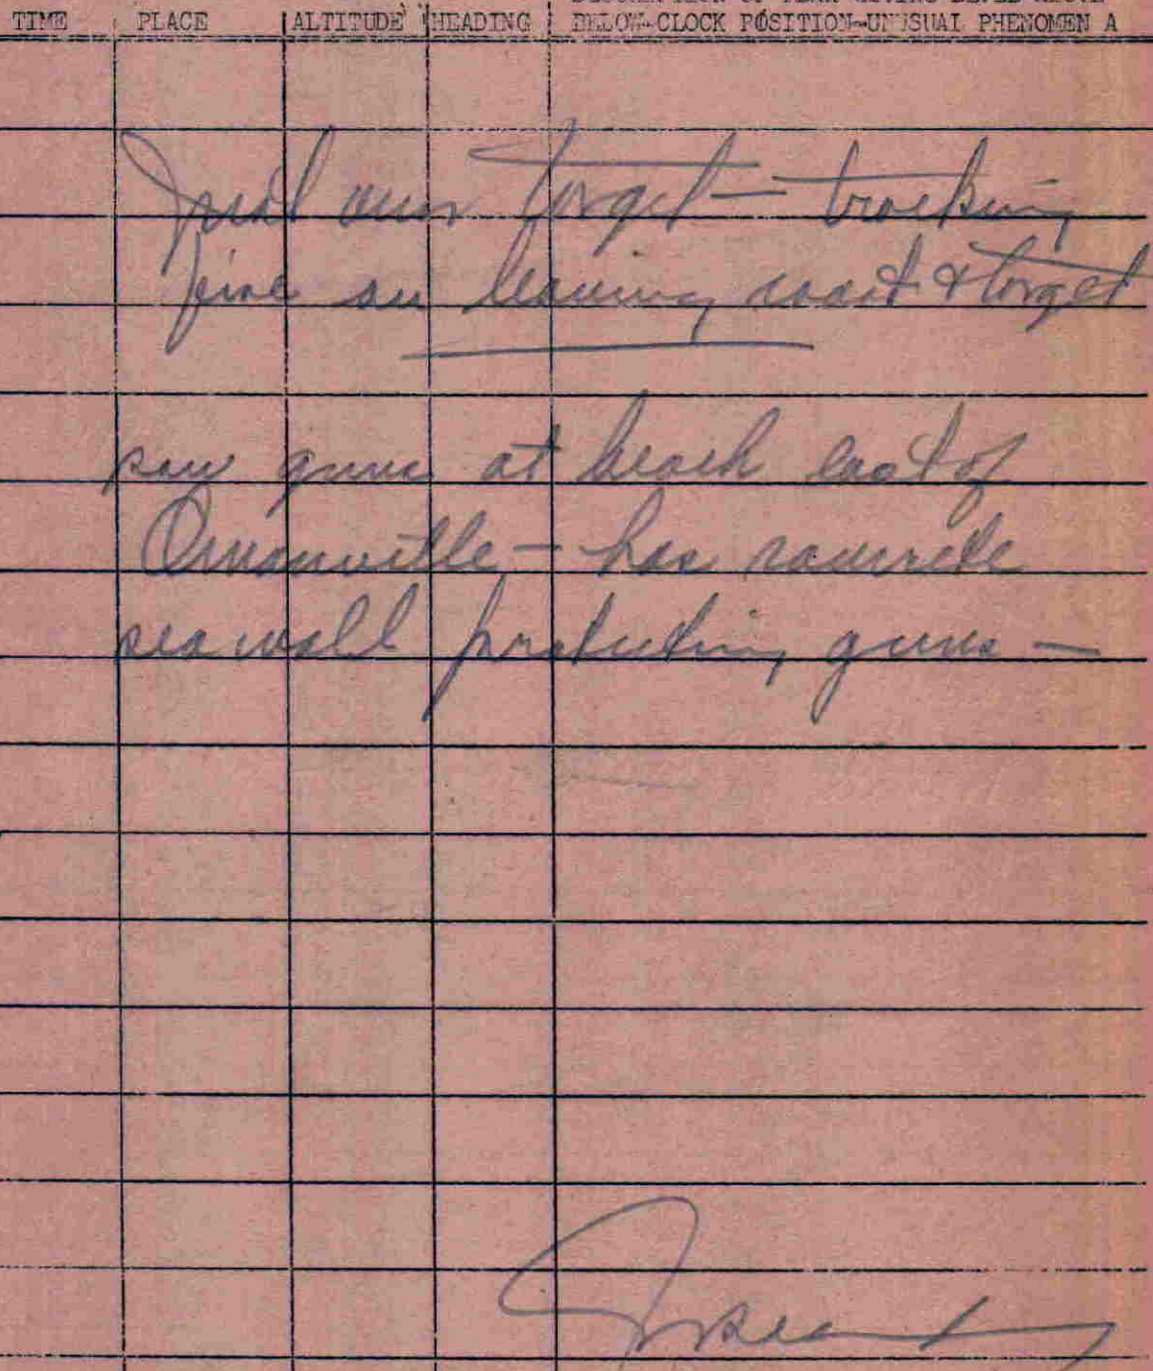 TIME PLACE ALTITUDE HEADING BELOW-CLOCK POSITION-UNUSUAL PHENOMEN A
Just over target - tracking
fire on leaving coast & target
saw guns at beach east of
Omonville - has concrete
sea wall protecting guns -